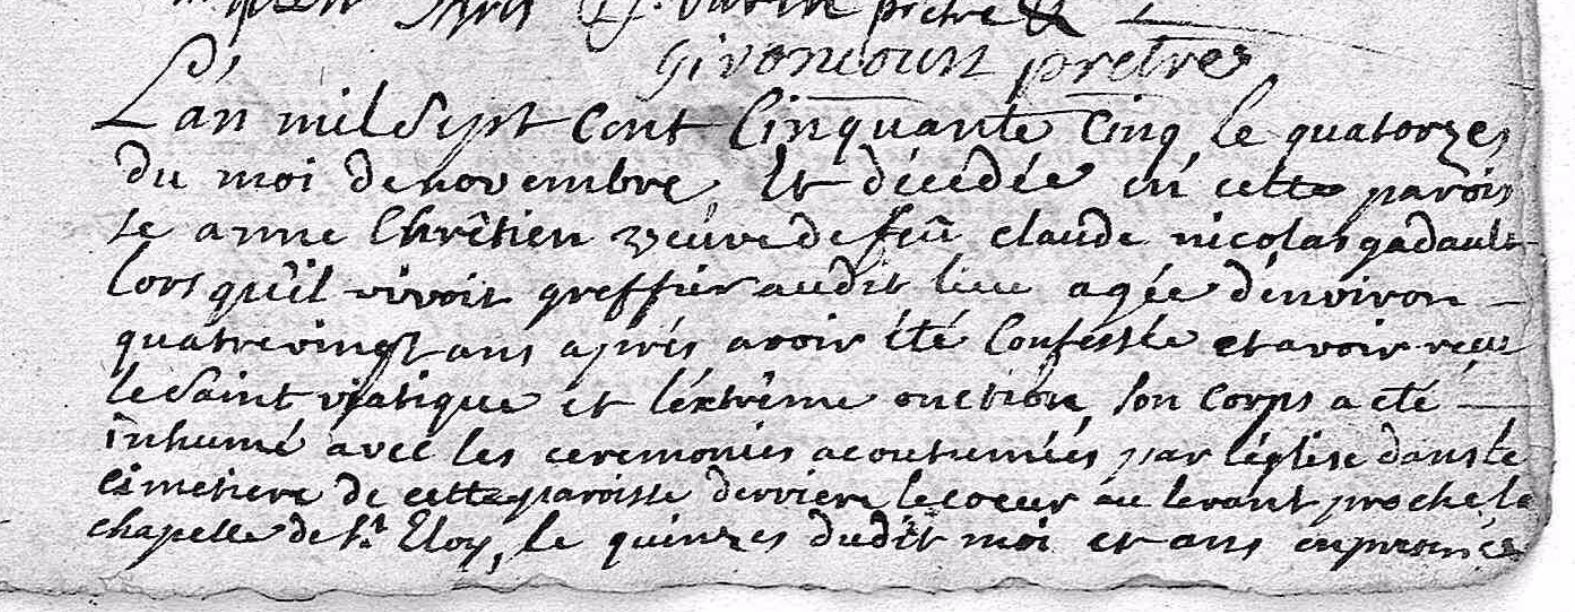 prêtre
Givoncourt prêtres
L'an mil Sept Cent Cinquante Cinq le quatorzes
du moi de novembre, Et décédée en cette parois
se anne Chrêtien veuve de feû claude nicolas gadault
lors qu'il vivoit greffier audit lieu agée d'environ
quatrevingt ans aprés avoir été Confessée et avoir reçu
le Saint viatique et l'extrême onction, son corps a eté
inhumé avec les ceremonies acoutumées, par l'église dans le
cimetiere de cette paroisse derriere le coeur au levant proche la
chapelle de St. Eloy, le quinzes dudit moi et ans en presence